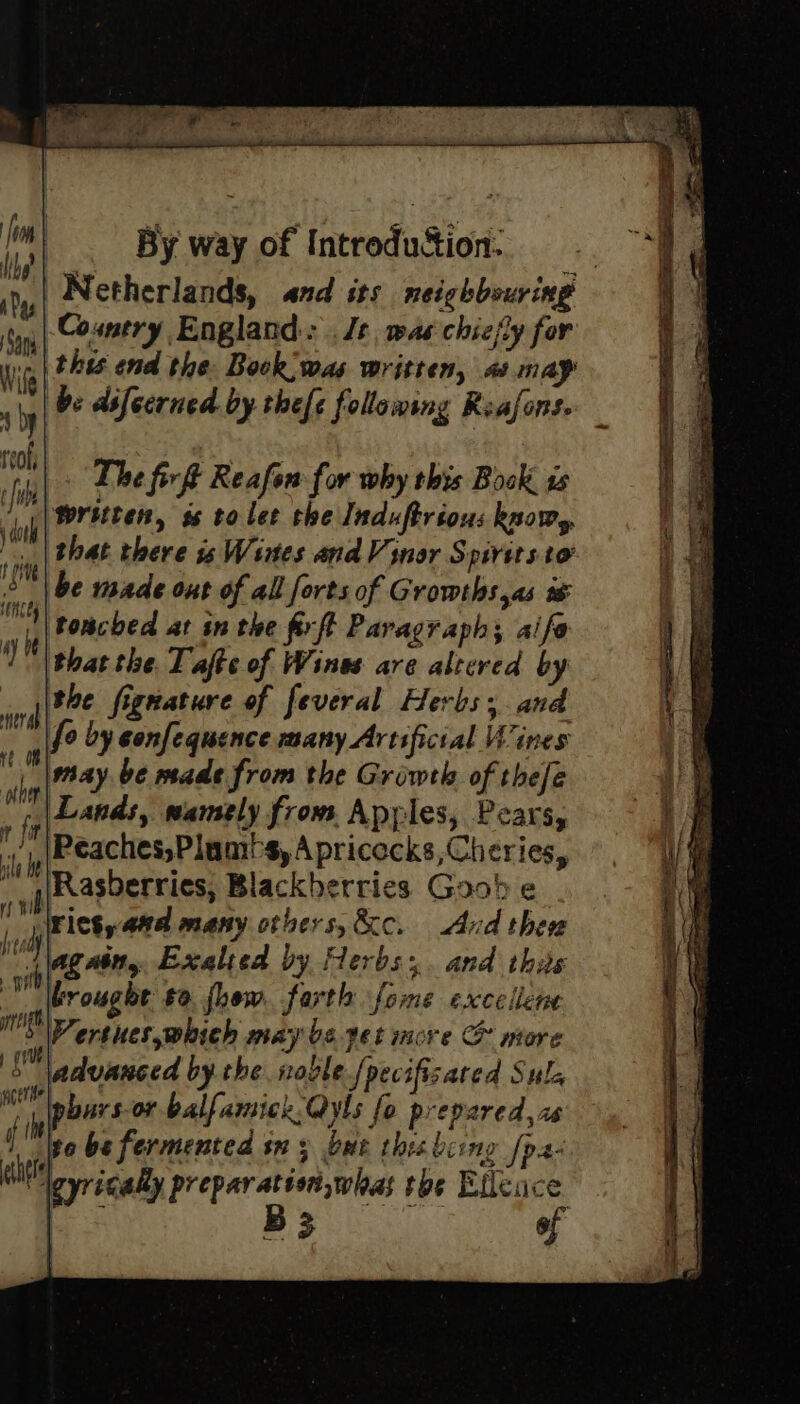 By way of Introduction.
Netherlands, and its neighbouring
Country England: It was chiefly for
this end the Book was written, as may
be diſcerned by theſe following Reaſons.
The firſt Reaſon for why this Book is
written, is to let the Induſtrious know,
that there is Wines and Vinor Spirits to
be made out of all ſorts of Growths, as is
touched at in the firſt Paragraph; alſo
that the Taſte of Wines are altered by
the ſignature of ſeveral Herbs; and
ſo by conſequence many Artificial Wines
may be made from the Growth of theſe
Lands, namely from Apples, Pears,
Peaches, Plumbs, Apricocks, Cheries,
Rasberries, Blackberries Goobe
ries, and many others, &c. And then
again, Exalted by Herbs; and thus
brought to ſhow farth ſome excellent
Vertues, which may be yet more & more
advanced by the noble ſpecificated Sul-
phurs or balſamick Oyls ſo prepared, as
to be fermented in; but this being ſpa-
gyrically preparation, what the Eſſence
B 3 of